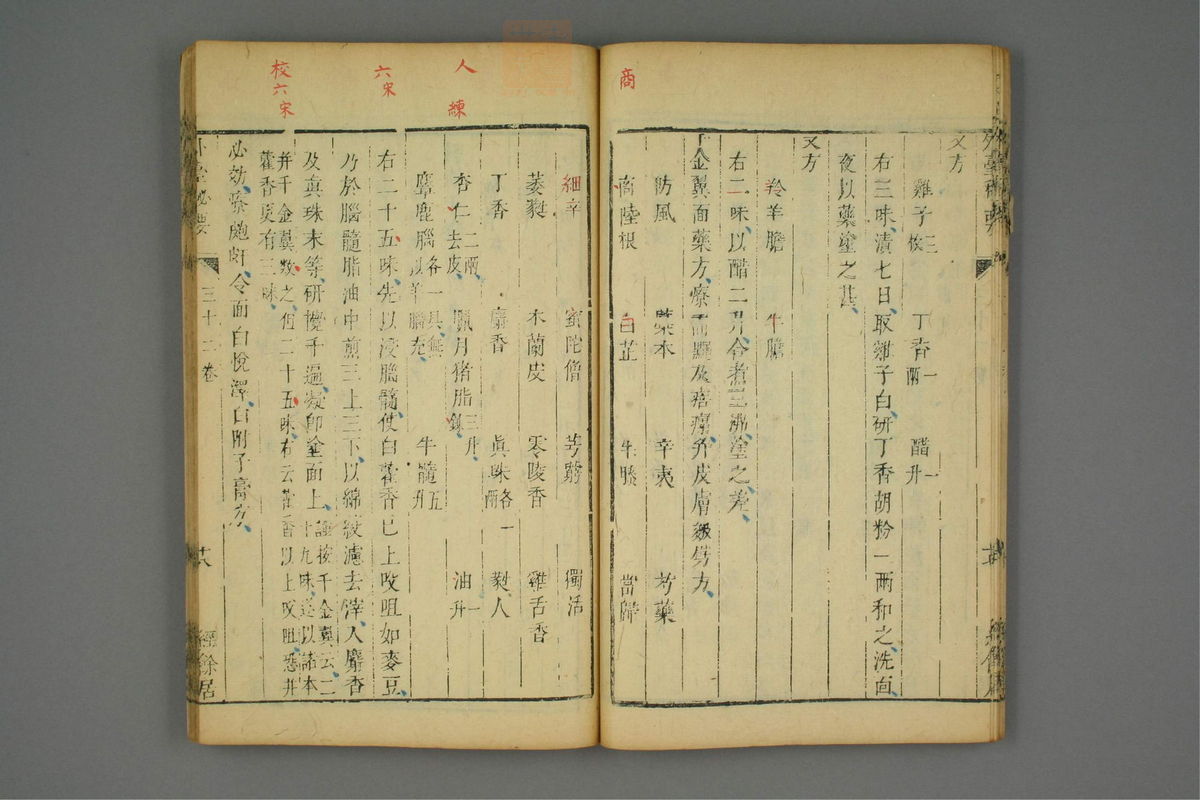 又方
雞子三枚 丁香一兩 醋一升
右三味漬七日取雞子白研丁香胡粉一兩和之洗面
夜以藥塗之甚
又方
羚羊膽 牛膽
右二味以醋二升合煮三沸塗之差
千金翼面藥方療及皮膚皴劈方
防風 藁本 辛夷 芍藥
商陸根 白芷 牛膝 當歸
商
細辛 蜜陀僧 芎藭 獨活
萎蕤 木蘭皮 零陵香 雞舌香
丁香 麝香 真珠各一兩 蕤人
杏仁二兩去皮 臘月猪脂三升鍊 油一升
麞鹿腦各一具無以羊髓充 牛髓五升
右二十五味先以浸腦髓使白藿香已上㕮咀如麥豆
乃於腦髓脂油中煎三上三下以綿絞濾去滓入麝香
及真珠末等研攪千遍凝即塗面上謹按千金翼云二
十九味逐以諸本
并千金翼數之但二十五味右云藿香以上㕮咀恐并
藿香更有三味
必効療皰皯令面白悅澤白附子膏方
人
練
六宋
校六宋
外臺秘要
三十二卷
經餘居